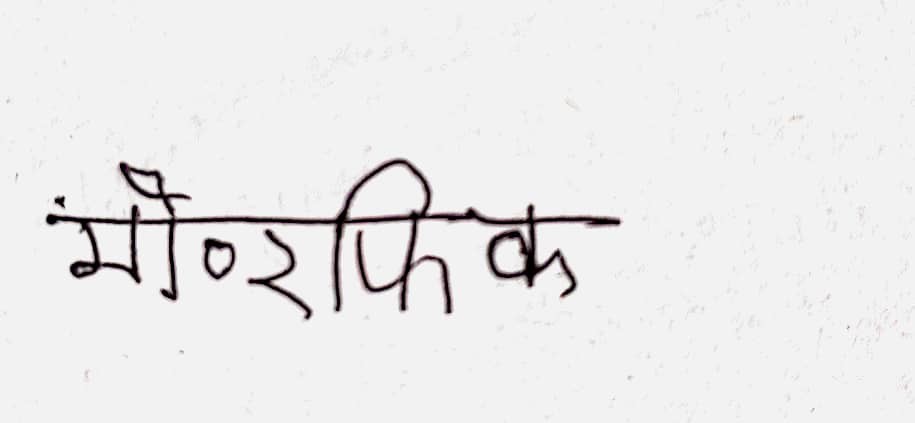 मो०रफिक